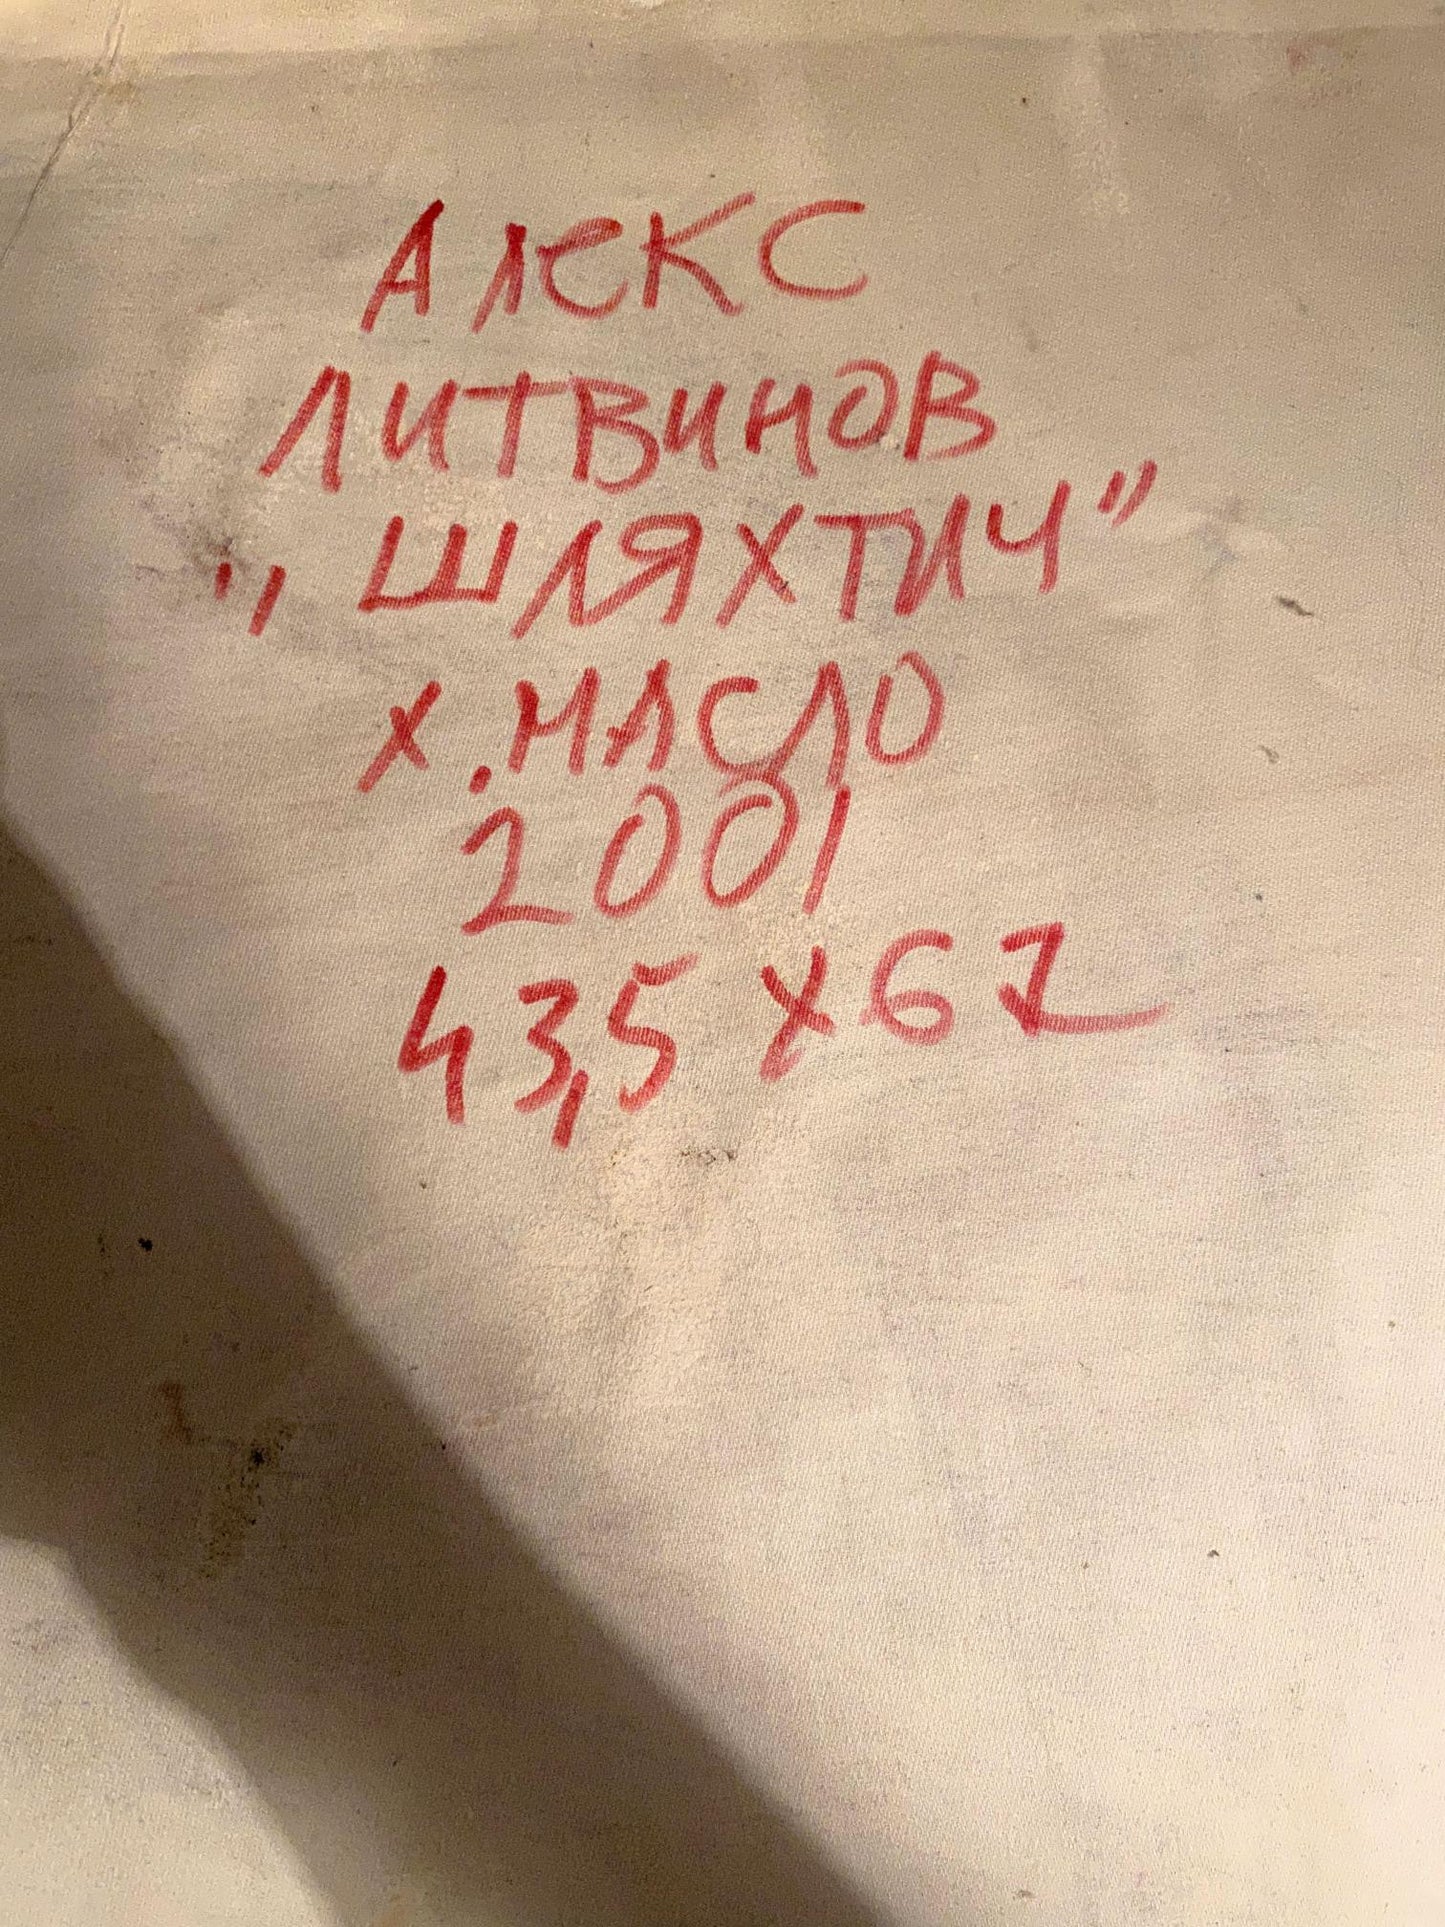 АЛЕКС
ЛИТВИНОВ
„ШЛЯХТИЧ”
х. МАСЛО
2001
43,5 х 61